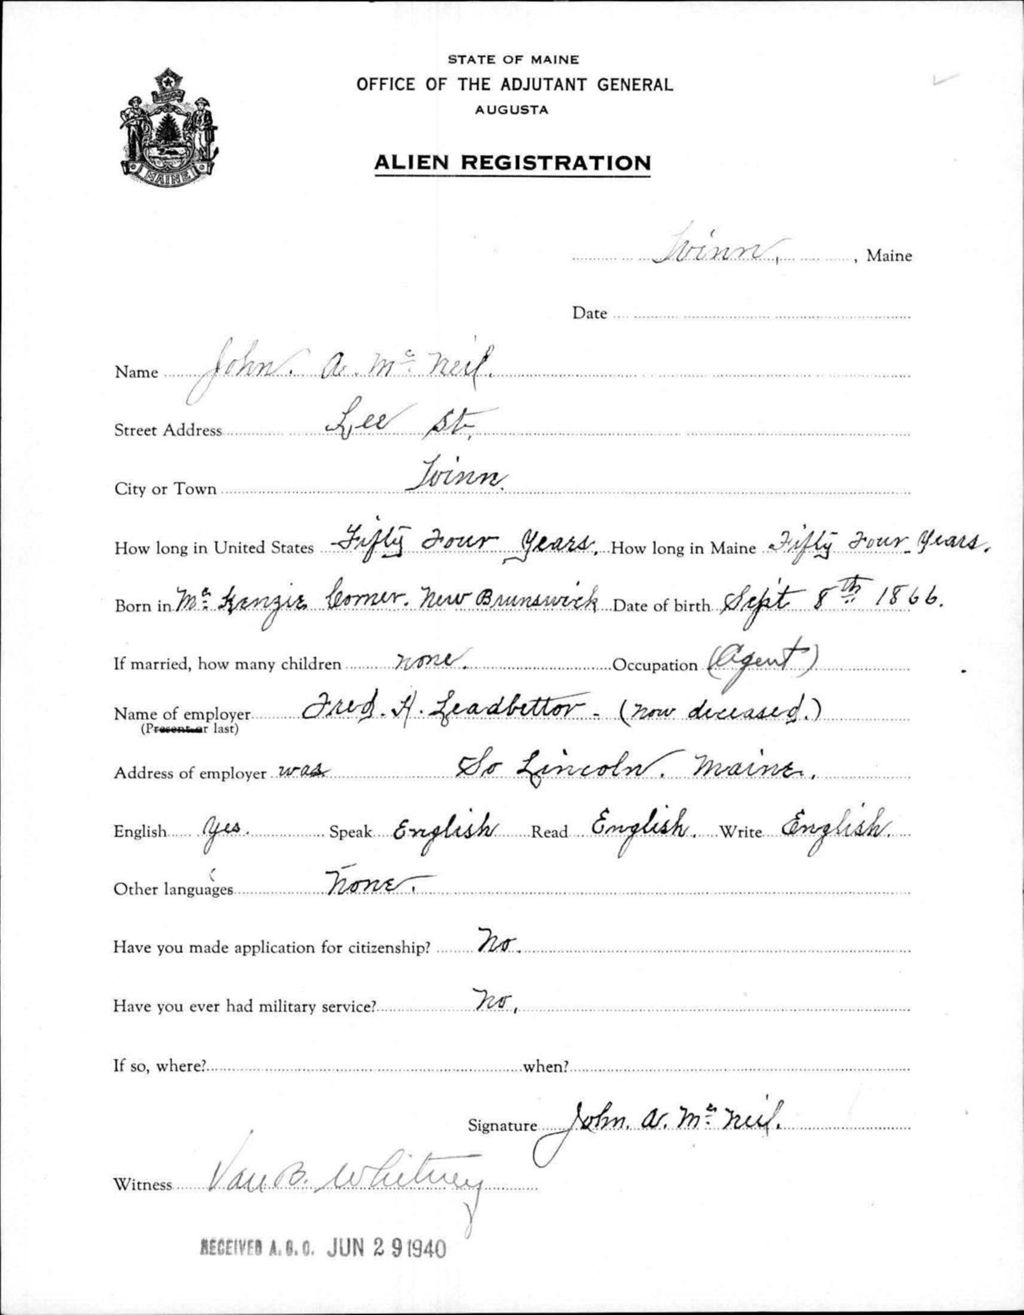 STATE OF MAINE
OFFICE OF THE ADJUTANT GENERAL
AUGUSTA
ALIEN REGISTRATION
MAINE
Winn, , Maine
Date
Name John. A. Mc Neil.
Street Address Lee St.
City or Town Winn.
How long in United States Fifty Four Years. How long in Maine Fifty Four Years.
Born in Mc Kenzie Corner. New Brunswick Date of birth Sept 8th 1866.
If married, how many children none. Occupation (Agent)
Name of employer Fred. H. Leadbettor - (now deceased.)
(Present or last)
Address of employer was So Lincoln. Maine.
English Yes. Speak English Read English. Write English.
Other languages None.
Have you made application for citizenship? No.
Have you ever had military service? No,
If so, where? when?
Signature John. A. Mc Neil.
Witness Van B. Whitney
RECEIVED A.G.O. JUN 29 1940